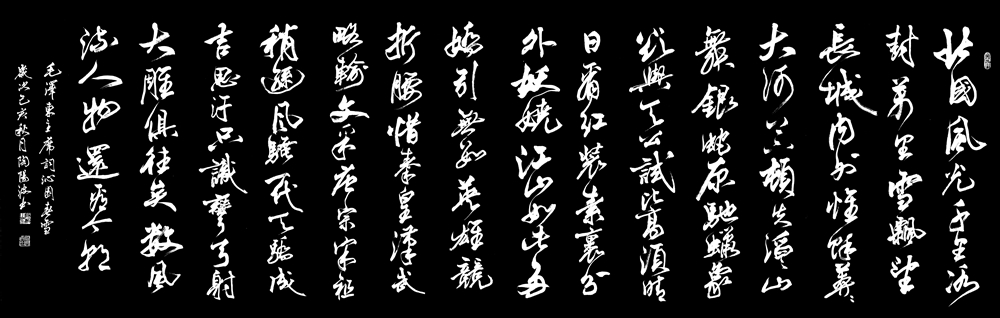 北國風光千里冰
封萬里雪飄望
長城內外惟餘莽々
大河上下頓失滔々山
舞銀蛇原馳蠟象
欲與天公試比高須晴
日看紅裝素裹分
外妖嬈江山如此多
嬌引無數英雄競
折腰惜秦皇漢武
略輸文采唐宗宋祖
稍遜風騷一代天驕成
吉思汗只識彎弓射
大雕俱往矣數風
流人物還看今朝
毛澤東主席詞沁園春雪
歲次己亥秋月陶陽